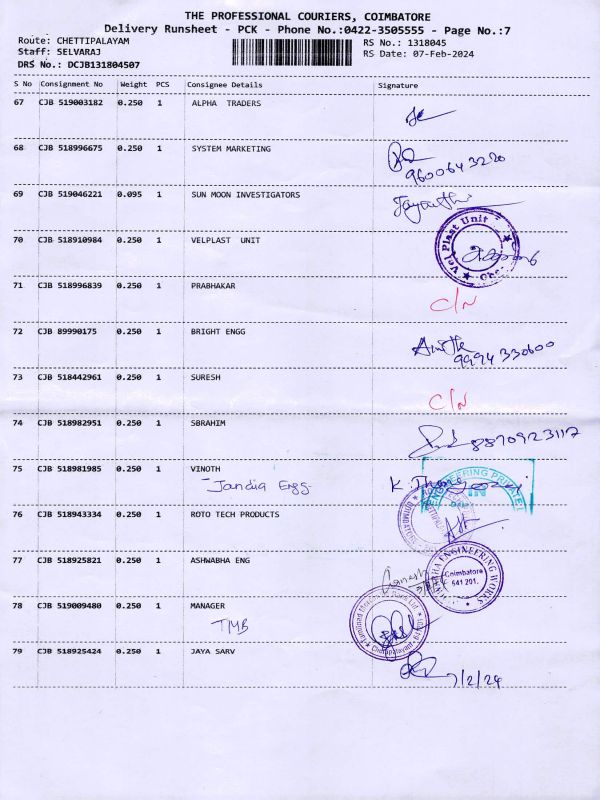 THE PROFESSIONAL COURIERS, COIMBATORE
Delivery Runsheet - PCK - Phone No.:0422-3505555 - Page No.:7
Route: CHETTIPALAYAM RS No.: 1318045
Staff: SELVARAJ RS Date: 07-Feb-2024
DRS No.: DCJB131804507
S No Consignment No Weight PCS Consignee Details Signature
67 CJB 519003182 0.250 1 ALPHA TRADERS
68 CJB 518996675 0.250 1 SYSTEM MARKETING
9600643220
69 CJB 519046221 0.095 1 SUN MOON INVESTIGATORS
Jayanthi
70 CJB 518910984 0.250 1 VELPLAST UNIT
Vel Plast Unit
71 CJB 518996839 0.250 1 PRABHAKAR
C/N
72 CJB 89990175 0.250 1 BRIGHT ENGG
9994330600
73 CJB 518442961 0.250 1 SURESH
C/N
74 CJB 518982951 0.250 1 SBRAHIM
8870923117
75 CJB 518981985 0.250 1 VINOTH
Jandia Engg. K. ENGINEERING PRIVATE
76 CJB 518943334 0.250 1 ROTO TECH PRODUCTS
77 CJB 518925821 0.250 1 ASHWABHA ENG
Ganesh
ENGINEERING WORKS
Coimbatore
641 201.
78 CJB 519009480 0.250 1 MANAGER
TMB
Bank Ltd
Chettipalayam
79 CJB 518925424 0.250 1 JAYA SARV
7/2/24